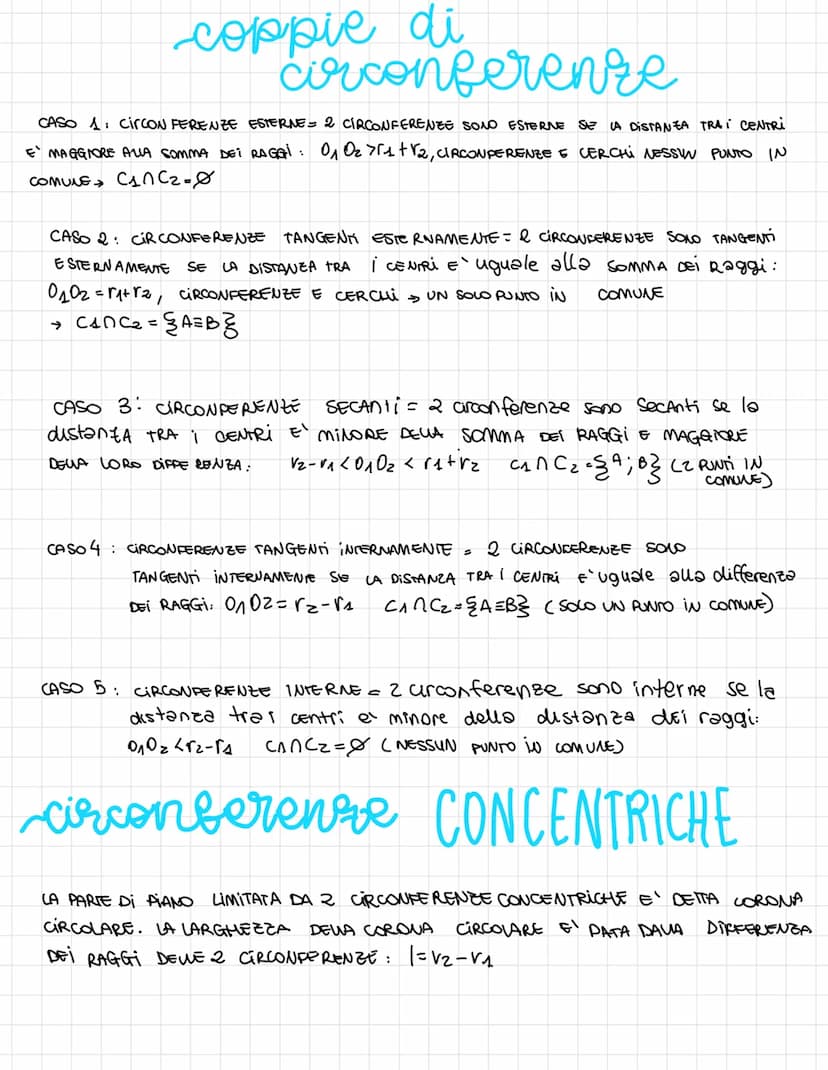 coppie di
circonferenze
CASO 1: CIRCONFERENZE ESTERNE = 2 CIRCONFERENZE SONO ESTERNE SE LA DISTANZA TRA I CENTRI
E' MAGGIORE ALLA SOMMA DEI RAGGI: O1O2 > r1 + r2, CIRCONFERENZE E CERCHI NESSUN PUNTO IN
COMUNE → C1 ∩ C2 = ∅
CASO 2: CIRCONFERENZE TANGENTI ESTERNAMENTE = 2 CIRCONFERENZE SONO TANGENTI
ESTERNAMENTE SE LA DISTANZA TRA I CENTRI E' uguale alla SOMMA DEI Raggi:
O1O2 = r1 + r2, CIRCONFERENZE E CERCHI → UN SOLO PUNTO IN COMUNE
→ C1 ∩ C2 = {A≡B}
CASO 3: CIRCONFERENZE SECANTI = 2 circonferenze sono secanti se la
distanza TRA I CENTRI E' MINORE DELLA SOMMA DEI RAGGI E MAGGIORE
DELLA LORO DIFFERENZA: r2 - r1 < O1O2 < r1 + r2 C1 ∩ C2 = {A; B} (2 PUNTI IN
COMUNE)
CASO 4: CIRCONFERENZE TANGENTI INTERNAMENTE = 2 CIRCONFERENZE SONO
TANGENTI INTERNAMENTE SE LA DISTANZA TRA I CENTRI E' uguale alla differenza
DEI RAGGI: O1O2 = r2 - r1 C1 ∩ C2 = {A≡B} (SOLO UN PUNTO IN COMUNE)
CASO 5: CIRCONFERENZE INTERNE = 2 circonferenze sono interne se la
distanza tra i centri e' minore della distanza dei raggi:
O1O2 < r2 - r1 C1 ∩ C2 = ∅ (NESSUN PUNTO IN COMUNE)
circonferenze CONCENTRICHE
LA PARTE DI PIANO LIMITATA DA 2 CIRCONFERENZE CONCENTRICHE E' DETTA CORONA
CIRCOLARE. LA LARGHEZZA DELLA CORONA CIRCOLARE E' DATA DALLA DIFFERENZA
DEI RAGGI DELLE 2 CIRCONFERENZE: l = r2 - r1